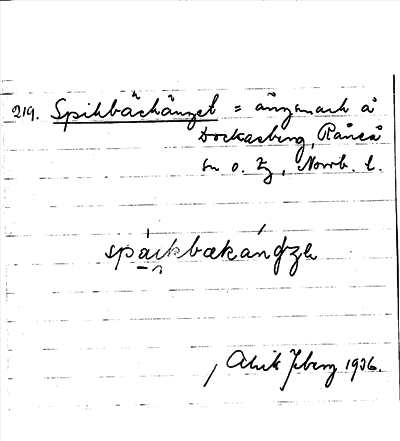 219. Spikbäckänget = ängsmark å
Dockasberg, Råneå
sn o. tg, Norrb. l.
spáikbækáŋdʒe
Alvik Isberg 1936.